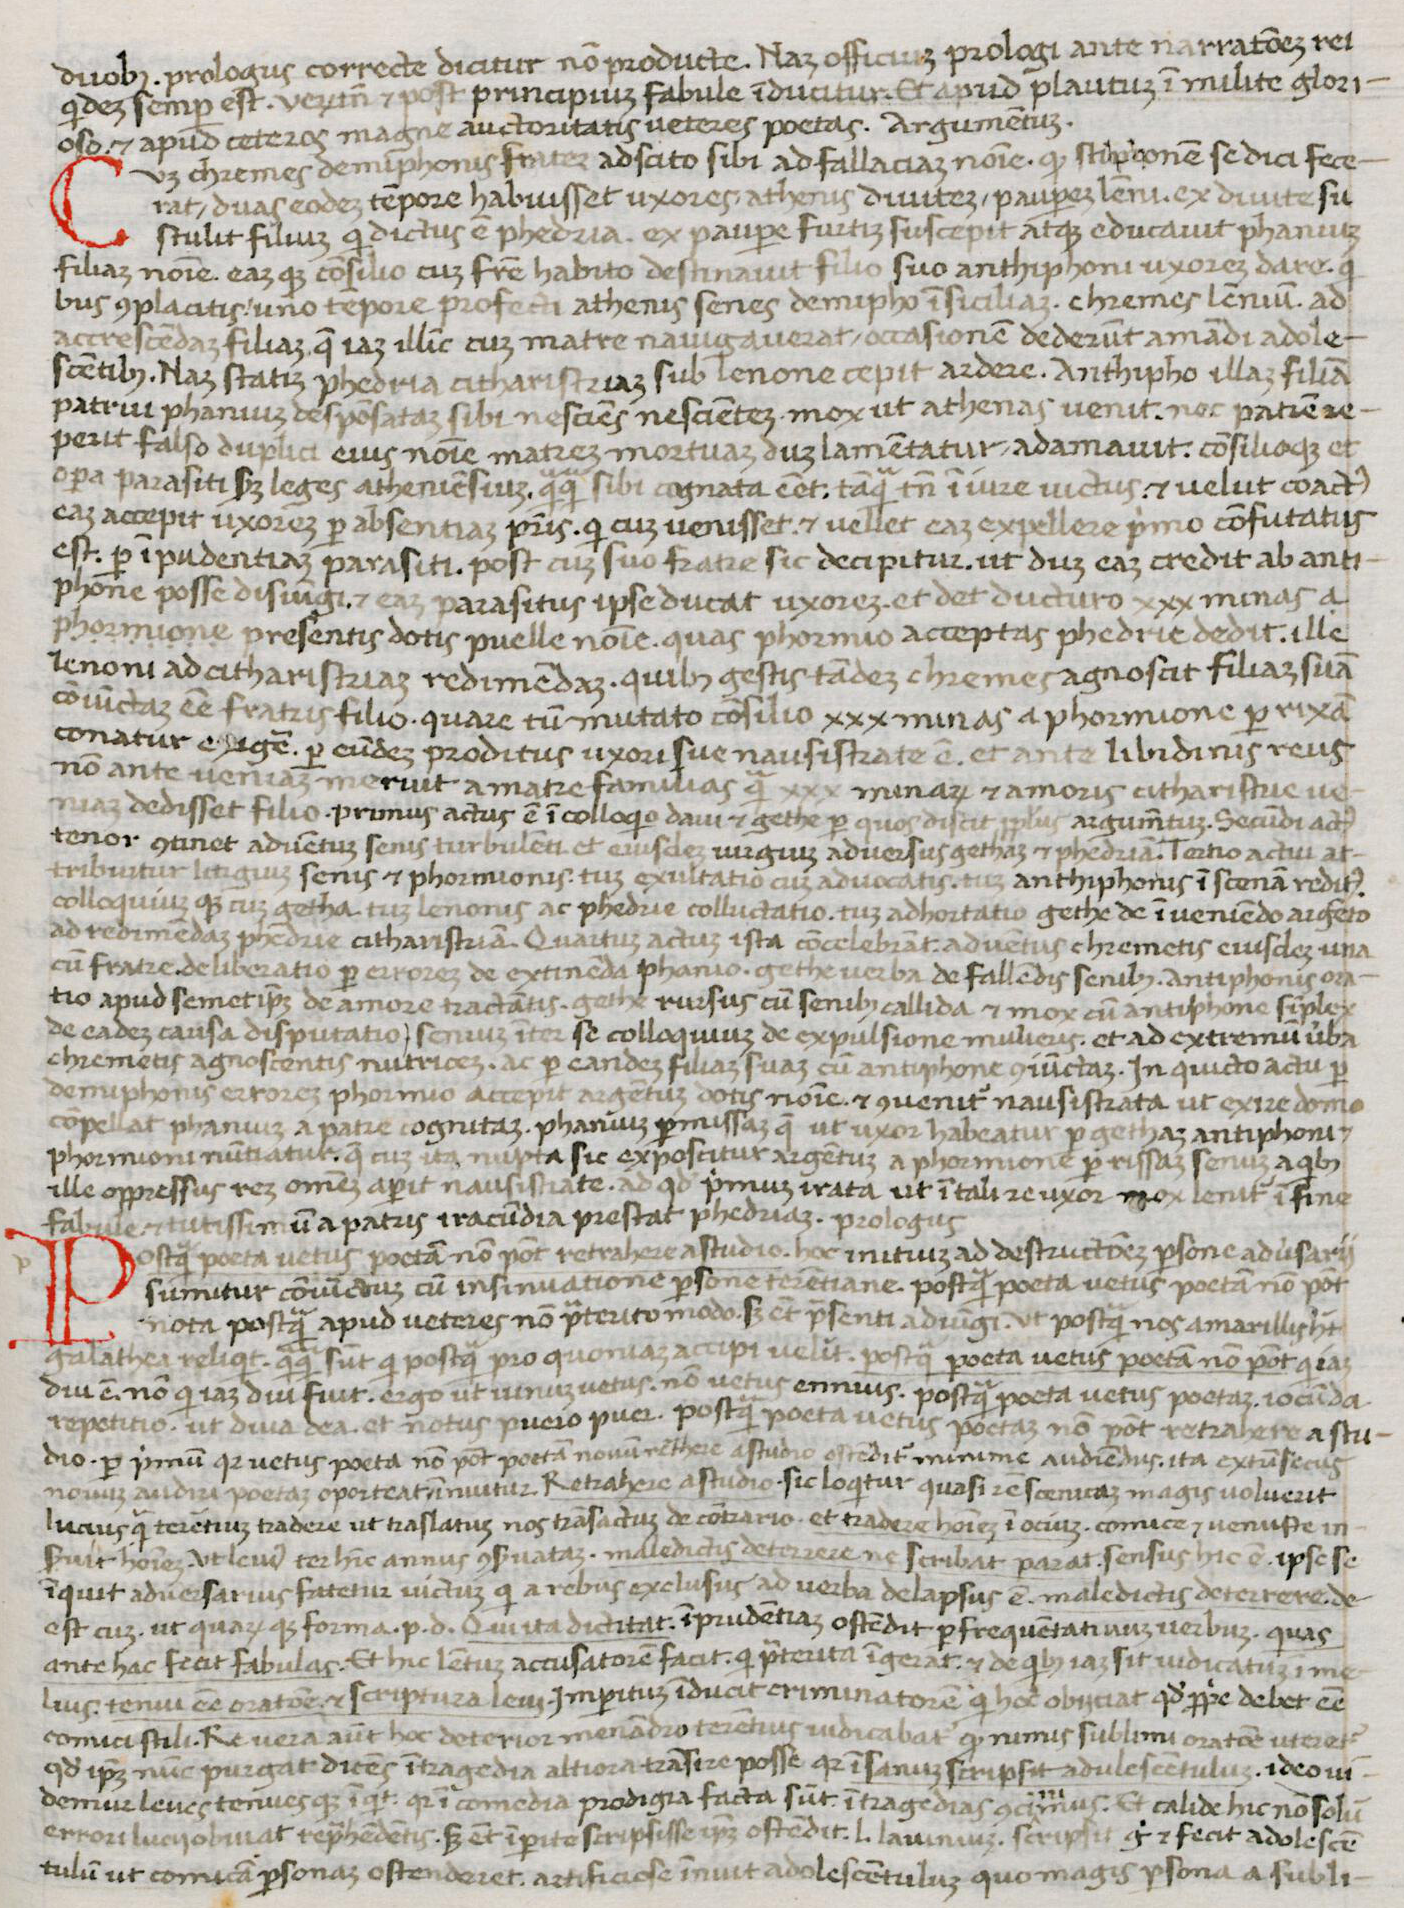 duobꝫ. prologus correcte dicitur nō producte. Naꝫ officiuꝫ prologi ante narratōeꝫ rei
q̇deꝫ semꝑ est. verūtn̄ ⁊ post principiuꝫ fabule īducitur. Et apud plautuꝫ ī milite glori-
oso. ⁊ apud ceteros magne auctoritatis ueteres poetas. Argumētuꝫ.
Cuꝫ chremes demiphonis frater adscito sibi ad fallaciaꝫ noīe. ꝙ stilponē se dici fece-
rat, duas eodeꝫ tēpore habuisset uxores, athenis diuiteꝫ, pauꝑeꝫ lēni. ex diuite su
stulit filiuꝫ q̇ dictus ē phedria. ex pauꝑe furtiꝫ suscepit atqꝫ educauit phaniuꝫ
filiaꝫ noīe. eaꝫ qꝫ cōsilio cuꝫ frē habito destinauit filio suo anthiphoni uxoreꝫ dare. q̇
bus ꝯplacitis, uno tēpore profecti athenis senes demipho ī siciliaꝫ. chremes lēniū. ad
accrescēdaꝫ filiaꝫ, quē iaꝫ illīc cuꝫ matre nauigauerat, occasionē dederūt amādi adole-
scētibꝫ. Naꝫ statiꝫ phedria citharistriaꝫ sub lenone cepit ardere. Anthipho illaꝫ filiā
patrui phaniuꝫ despōsataꝫ sibi nesciēs nesciēteꝫ. mox ut athenas uenit. nec patrē re-
perit falso duplici eius noīe matreꝫ mortuaꝫ duꝫ lamētatur, adamauit. cōsilioqꝫ et
oꝑa parasiti sꝫ leges atheniēsiuꝫ, sibi cognata eēt. tāq̄ tn̄ ī iure uictus. ⁊ velut coactꝰ
eaꝫ accepit uxoreꝫ ꝑ absentiaꝫ pr̄is. q̇ cuꝫ uenisset. ⁊ uellet eaꝫ expellere p̍mo cōfutatus
est. ꝑ īpudentiaꝫ parasiti. post cuꝫ suo fratre sic decipitur. ut duꝫ eaꝫ credit ab anti-
phōne posse disiūgi. ⁊ eaꝫ parasitus ipse ducat uxoreꝫ. et det ducturo xxx minas a
phormione presētis dotis puelle noīe. quas phormio acceptas phedrie dedit. ille
lenoni ad citharistriaꝫ redimēdaꝫ. quibꝫ gestis tādeꝫ chremes agnoscit filiaꝫ suā
cōiūctaꝫ eē fratris filio. quare tū mutato cōsilio xxx minas a phormione ꝑ rixā
conatur exigē. ꝑ eūdeꝫ proditus uxori sue nausistrate ē. et ante libidinis reus
nō ante ueniaꝫ meruit a matre familias q̄ xxx minaꝝ ⁊ amoris citharistrie ue-
niaꝫ dedisset filio. primus actus ē ī colloq̇o daui ⁊ gethe ꝑ quos discit argumētuꝫ. Secūdi actꝰ
tenor ꝯtinet aduētuꝫ senis turbulēti et eiusdeꝫ iurgiuꝫ aduersus gethaꝫ ⁊ phedriā. Tertio actui at-
tribuitur litigiuꝫ senis ⁊ phormionis. tuꝫ exultatio cuꝫ aduocatis. tuꝫ anthiphonis ī scenā reditꝰ.
colloquiuꝫ qꝫ cuꝫ getha. tuꝫ lenonis ac phedrie colluctatio. tuꝫ adhortatio gethe de īueniēdo argēto
ad redimēdaꝫ phedrie citharistriā. Quartuꝫ actuꝫ ista cōcelebrāt. aduētus chremetis eiusdeꝫ una
cū fratre. deliberatio ꝑ erroreꝫ de extinēda phanio. gethe uerba de fallēdis senibꝫ. Antiphonis ora-
tio apud semetip̄ꝫ de amore tractātis. gethe rursus cū senibꝫ callida ⁊ mox cū antiphone sīplex
de eadeꝫ causa disputatio, senuꝫ īter se colloquiuꝫ de expulsione mulieris. et ad extremū ūba
chremetis agnoscentis nutriceꝫ. ac ꝑ eandeꝫ filiaꝫ suaꝫ cū antiphone ꝯiūctaꝫ. In quīcto actu ꝑ
demiphonis erroreꝫ phormio accepit argētuꝫ dotis noīe. ⁊ ꝯuenitᷣ nausistrata ut exire domo
cōpellat phaniuꝫ a patre cognitaꝫ. phaniuꝫ ꝑmissaꝫ q̄ ut uxor habeatur ꝑ gethaꝫ antiphoni ⁊
phormioni nūtiatur. q̄ cuꝫ ita nupta sic exposcitur argētuꝫ a phormione ꝑ rissaꝫ senuꝫ a q̇bꝫ
ille oppressus reꝫ omēꝫ aꝑit nausistrate. ad qd̄ p̍muꝫ irata ut ī tali re uxor mox lenitᷣ ī fine
fabule. ⁊ tutissimū a patris iracūdia prestat phedriaꝫ. prologus
Postq̄ poeta vetus poetā nō pōt retrahere a studio. hoc initiuꝫ ad destructōeꝫ ꝑsone aduersarij
sumitur cōuictiuꝫ cū insinuatione ꝑsone terētiane. postq̄ poeta uetus poetā nō pōt
nota postq̄ apud ueteres nō p̄terito modo. sꝫ ēt p̄senti adiūgi. ut postq̄ nos amarillis hꝫ
galathea reliq̇t. q̄q̄ sūt q̇ postq̄ pro quoniaꝫ accipi velīt. postq̄ poeta uetus poetā nō pōt q̇ iaꝫ
diu ē. nō q̇ iaꝫ diu fuit. ergo ut uinuꝫ uetus. nō uetus ennius. postq̄ poeta uetus poetaꝫ. iocūda
repetitio. ut diua dea. et notus puero puer. postq̄ poeta uetus poetaꝫ nō pōt retrahere a stu-
dio. ꝑ p̍mū qr uetus poeta nō pōt poetā nouū rethere a studio ostēditᷣ minime audiēdus. ita extrīsecus
nouuꝫ audiri poetaꝫ oporteat īnuitur. Retrahere a studio. sic loq̇tur quasi rē scenicaꝫ magis uoluerit
lucius q̄ terētiuꝫ tradere ut traslatuꝫ nos trāsactuꝫ de cōtrario. et tradere hoīeꝫ ī ociuꝫ. comice ⁊ uenuste in-
ꝑuit hoīeꝫ. ter hīc annus ꝯꝑuataꝫ. maledictis deterrere ne scribat parat. sensus hic ē. ipse se
īquit aduersarius fatetur uictuꝫ q̇ a rebus exclusus ad uerba delapsus ē. maledictis deterrere. de
est cuꝫ. ut quaꝝ qꝫ forma. p. d. Qui ita dictitat. īprudētiaꝫ ostēdit ꝑ frequētatiuuꝫ uerbuꝫ. quas
ante hac fecit fabulas. Et hic lētuꝫ accusatorē facit. q̇ p̄terita īgerat. ⁊ de q̇bꝫ iaꝫ sit iudicatuꝫ ī me-
lius. tenui eē oratōe. ⁊ scriptura leui. Imꝑituꝫ īducit criminatorē q̇ hoc obijciat qd̄ ꝓp̄e debet eē
comici stili. Re uera aūt hoc deterior menādro terētius iudicabatᷣ ꝙ minus sublimi oratōe uteretᷣ
qd̄ ip̄ꝫ nūc purgat dicēs ī tragedia altiora trāsire posse qr īsanuꝫ scripsit adulescētuluꝫ. ideo ui-
demur leues tenuesqꝫ īq̇t. qr ī comedia prodigia facta sūt. ī tragedias ꝯcīimus. Et calide hic nō solū
errori lucij obuiat rep̄hēdētis. sꝫ ēt īꝑite scripsisse ip̄ꝫ ostēdit. l. lauiniuꝫ. scripsit g̊ ⁊ fecit adolescē
tulū ut comicā ꝑsonaꝫ ostenderet. artificiose īnuit adolescētuluꝫ quo magis ꝑsona a subli-